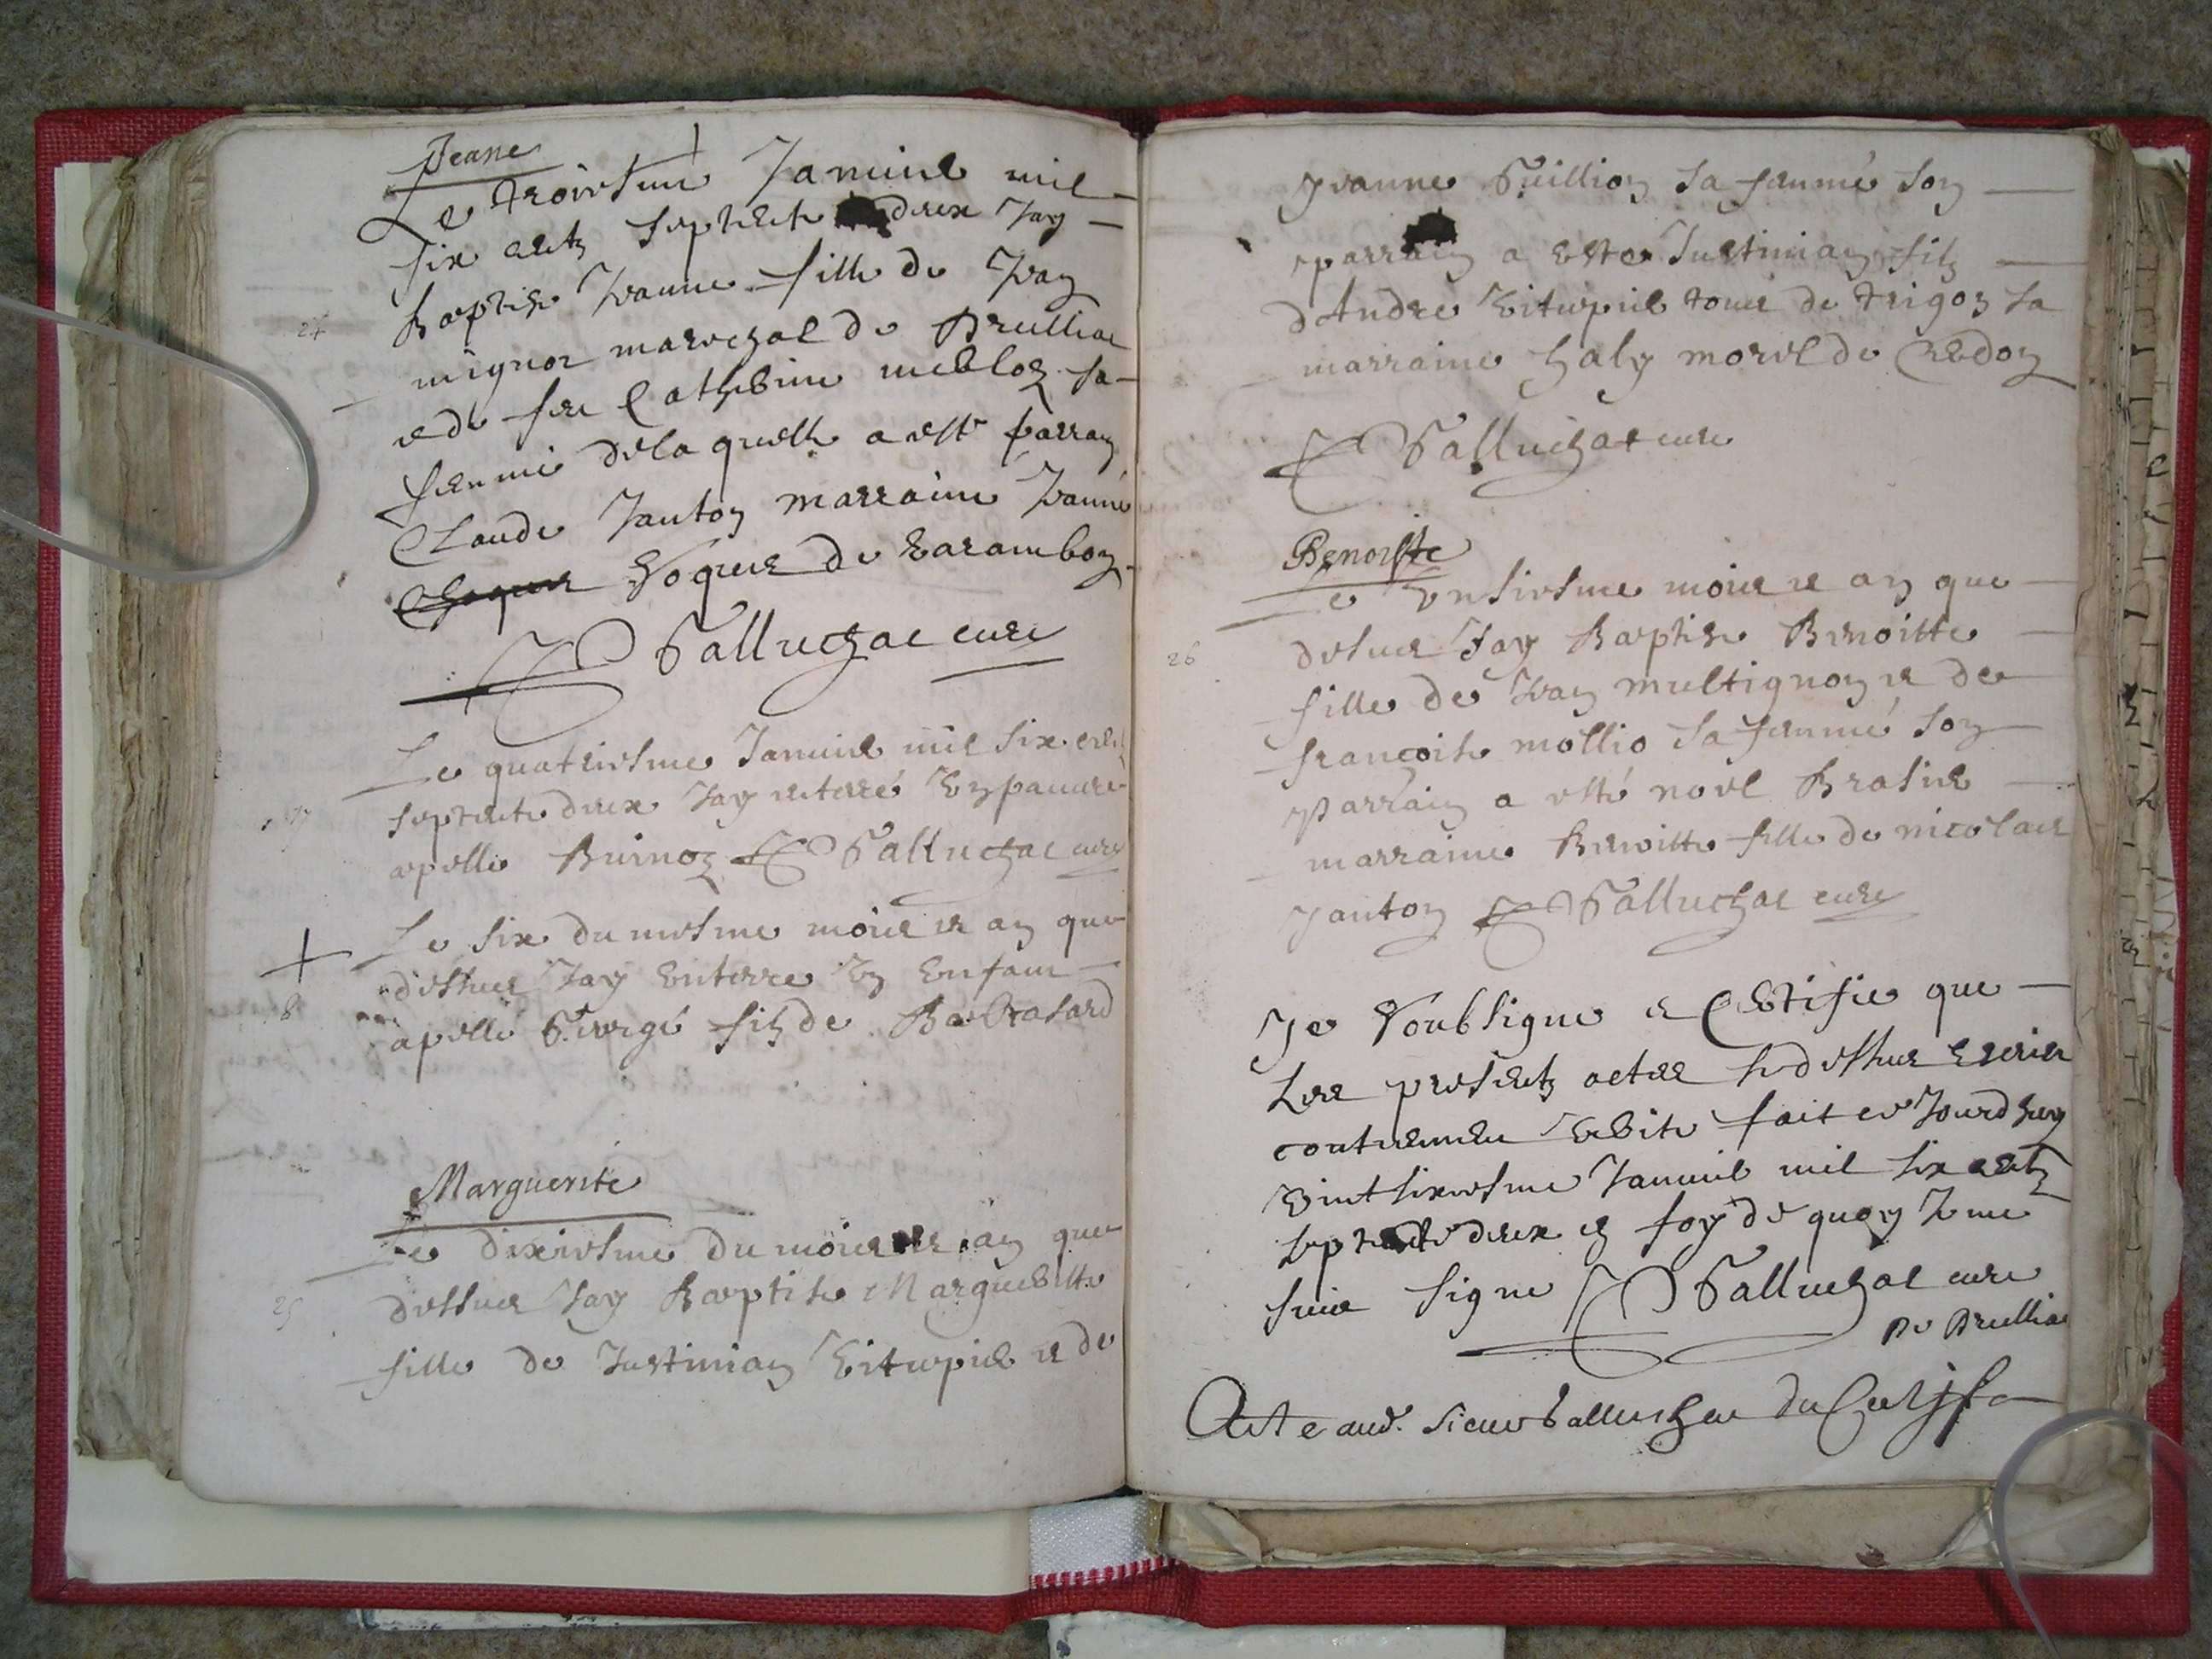 Jeane
Le troiesme Januier mil
six centz septente deux Jay
24
Baptise Jeanne fille de Jean
mignot mareschal de Druilliat
et de feu Catherine sa
femme de la quelle a esté parrain
Claude Janton marraine Jeanne
de Varambon
Palluchat curé
Le quatriesme Januier mil six cent
septente deux Jay enterré Un pauure
17
apellé Palluchat curé
Le six du mesme mois et an que
dessus Jay Enterre Un Enfant
18
apellé fils de
Marguerite
Le dixiesme du mois et an que
dessus Jay Baptise Margueritte
25
fille de Justinian et de
Jeanne sa femme son
parrain a este Justinian filz
d'Andre de sa
marraine morel de
Palluchat curé
Benoiste
Le Unsiesme mois et an que
desus Jay Baptise Benoitte
26
fille de Jean multignon et de
françoise mollio sa femme son
Parrain a esté noel Brasier
marraine Benoitte fille de nicolas
Janton Palluchat curé
Je Soubsigne et Certifie que
Les presentz actes sy dessus Escris
contiennent Verité fait ce Jourdhuy
Vint sixiesme Januier mil six centz
septente deux en foy de quoy Je me
suis signe Palluchat curé
De Druillia
Acte aud. sieur Palluchat du